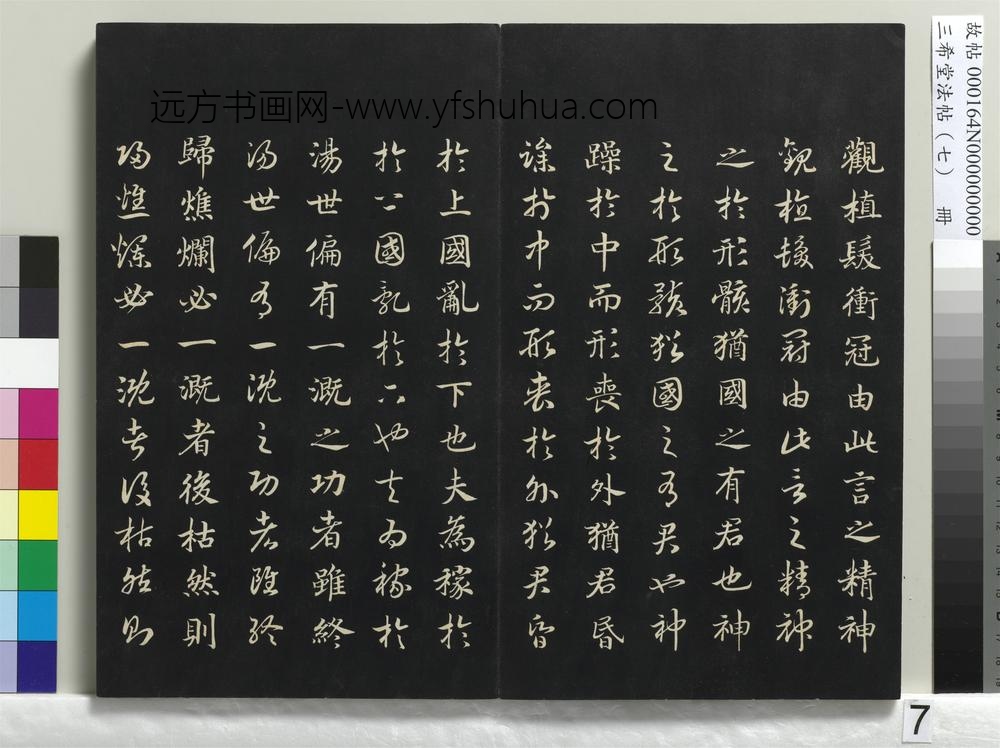 远方书画网-www.yfshuhua.com
觀植髮衝冠由此言之精神
觀植髮衝冠由此言之精神
之於形骸猶國之有君也神
之於形骸猶國之有君也神
躁於中而形喪於外猶君昬
躁於中而形喪於外猶君昏
於上國亂於下也夫為稼於
於上國亂於下也夫為稼於
湯世偏有一溉之功者雖終
湯世偏有一溉之功者雖終
歸燋爛必一溉者後枯然則
歸燋爛必一溉者後枯然則
故帖 000164N000000000
三希堂法帖（七） 冊
7